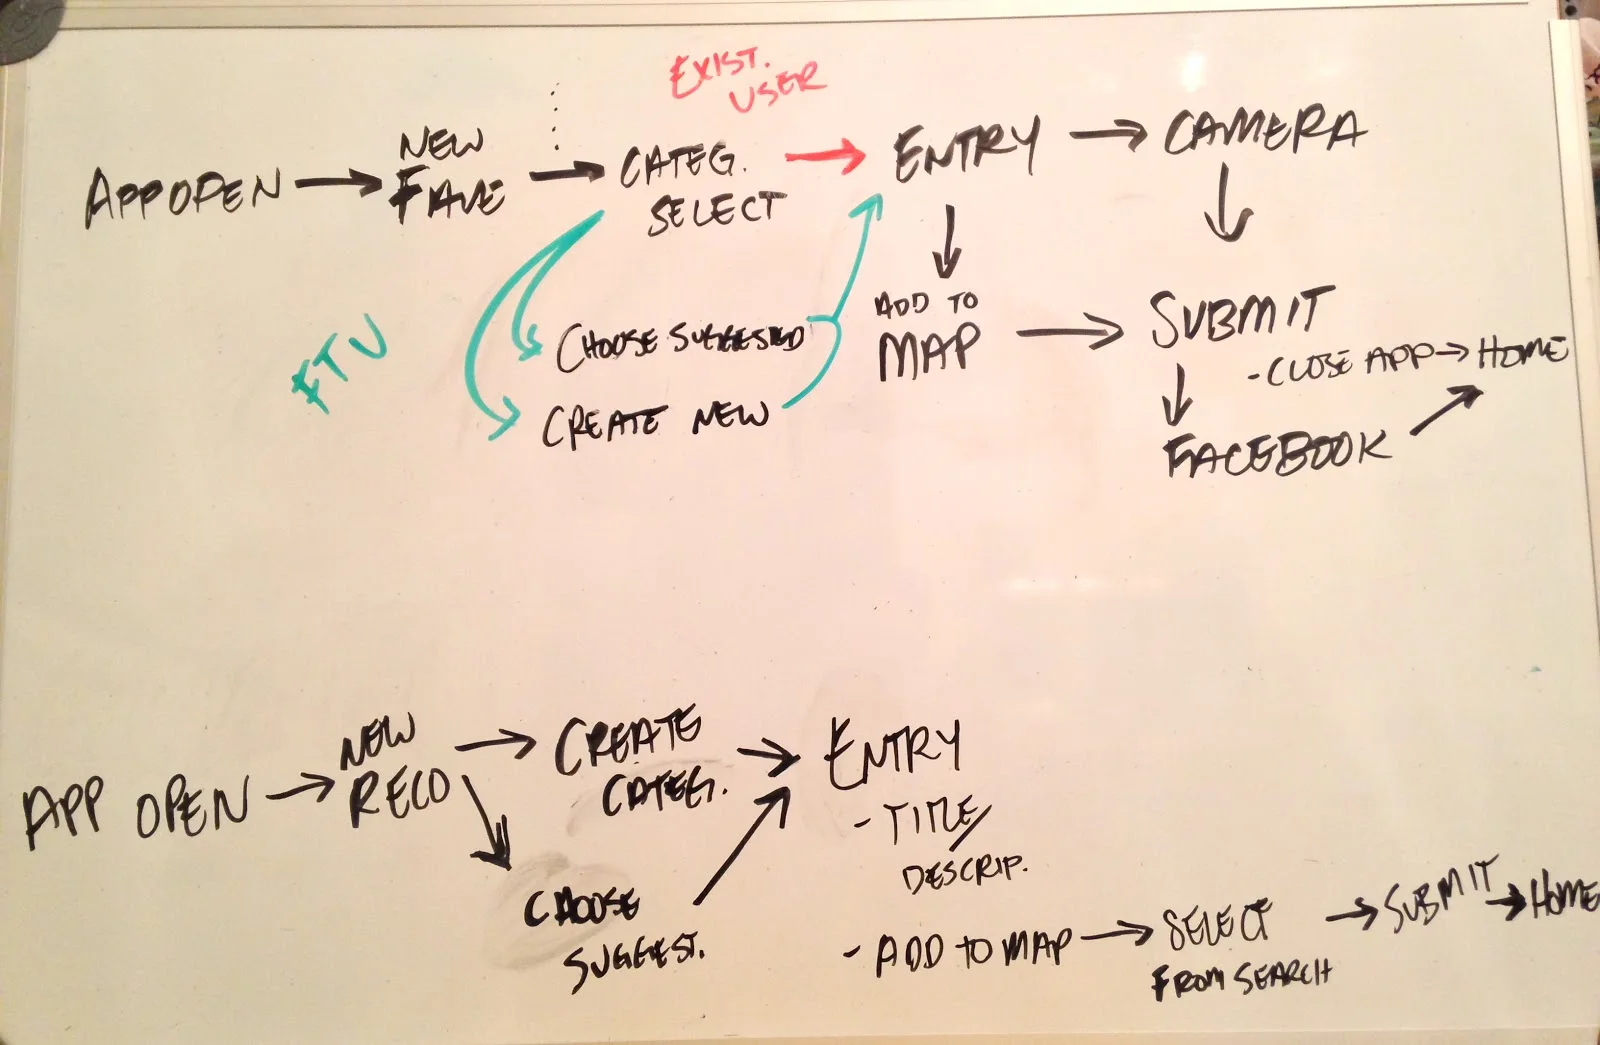 EXIST.
USER
APP OPEN → NEW
FAVE → CATEG.
SELECT → ENTRY → CAMERA
FTU
CHOOSE SUGGESTED
CREATE NEW
ADD TO
MAP → SUBMIT
- CLOSE APP → HOME
FACEBOOK
APP OPEN → NEW
RECO → CREATE
CATEG. → ENTRY
- TITLE/
DESCRIP.
CHOOSE
SUGGEST.
- ADD TO MAP → SELECT
FROM SEARCH → SUBMIT → HOME